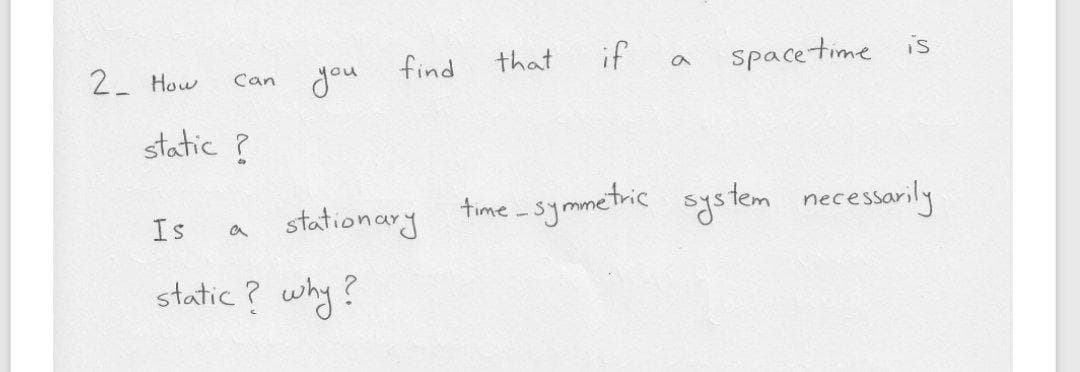 2_ How can you find that if a spacetime is
static ?
Is a stationary time-symmetric system necessarily
static ? why ?